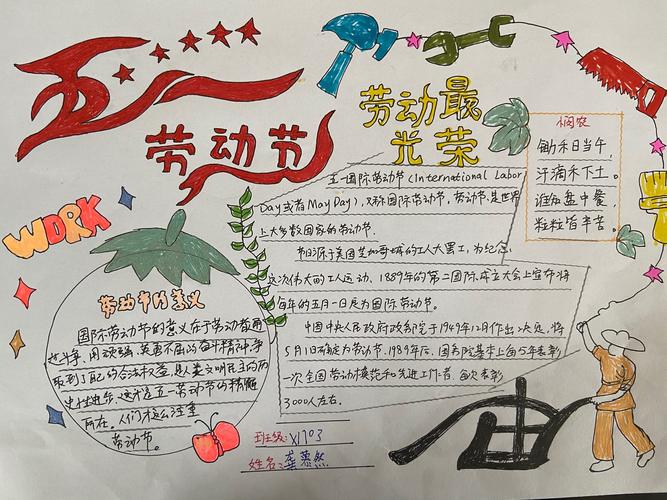 五一
劳动节
劳动最
光荣
悯农
锄禾日当午,
汗滴禾下土。
谁知盘中餐,
粒粒皆辛苦。
五一国际劳动节(International Labor
Day或者May Day),又称国际劳动节,劳动节,是世界
上大多数国家的劳动节。
节日源于美国芝加哥城的工人大罢工,为纪念
这次伟大的工人运动、1889年的第二国际成立大会上宣布将
每年的五月一日定为国际劳动节。
中国中央人民政府政务院于1949年12月作出决定,将
5月1日确定为劳动节.1989年后,国务院基本上每5年表彰
一次全国劳动模范和先进工作者,每次表彰
3000人左右。
WORK
劳动节的意义
国际劳动节的意义在于劳动者通
过斗争,用顽强、英勇不屈的奋斗精神,争
取到了自己的合法权益,是人类文明民主的历
史性进步,这才是五一劳动节的精髓
所在。人们才这么注重
劳动节。
班级:
姓名:龚慕然